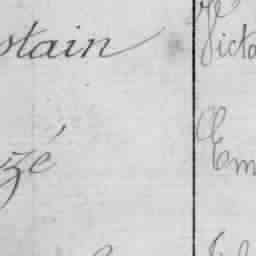 stain
Victo
zé
Em